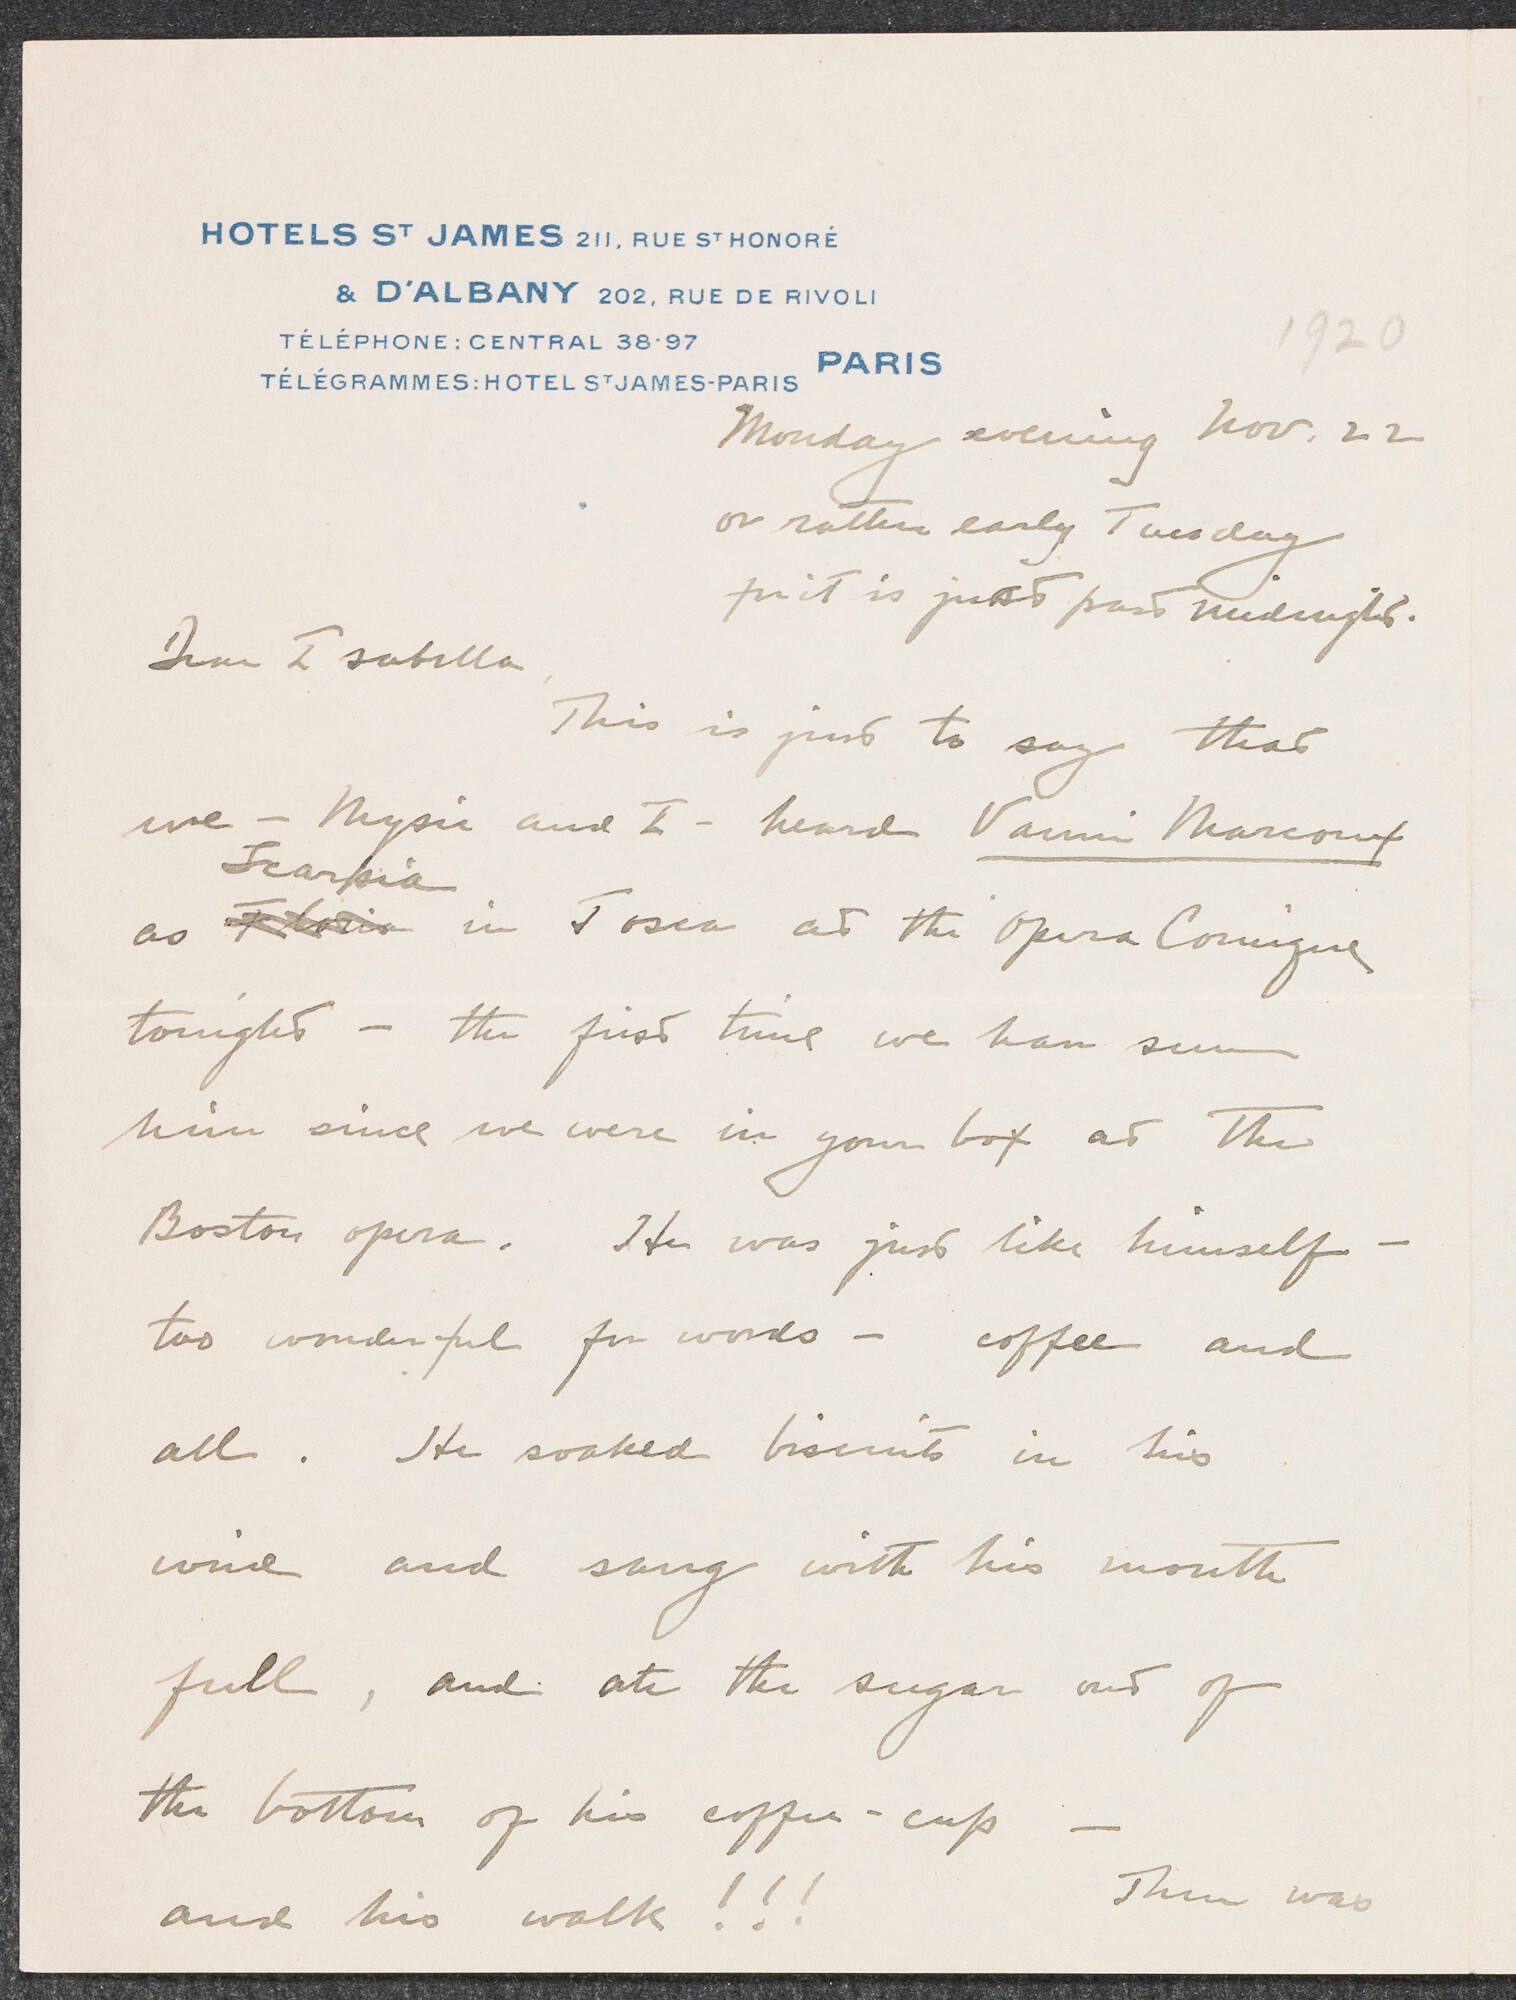 HOTELS ST JAMES 211, RUE ST HONORÉ
& D'ALBANY 202, RUE DE RIVOLI
TÉLÉPHONE: CENTRAL 38·97
TÉLÉGRAMMES: HOTEL ST JAMES-PARIS
PARIS
1920
Monday evening Nov. 22
or rather early Tuesday
for it is just past midnight.
Dear Isabella,
This is just to say that
we – Mysie and I – heard Vanni Marcoux
Scarpia
as in Tosca at the Opera Comique
tonight – the first time we have seen
him since we were in your box at the
Boston opera. He was just like himself –
too wonderful for words – coffee and
all. He soaked biscuits in his
wine and sang with his mouth
full, and ate the sugar out of
the bottom of his coffee-cup –
and his walk!!! There was